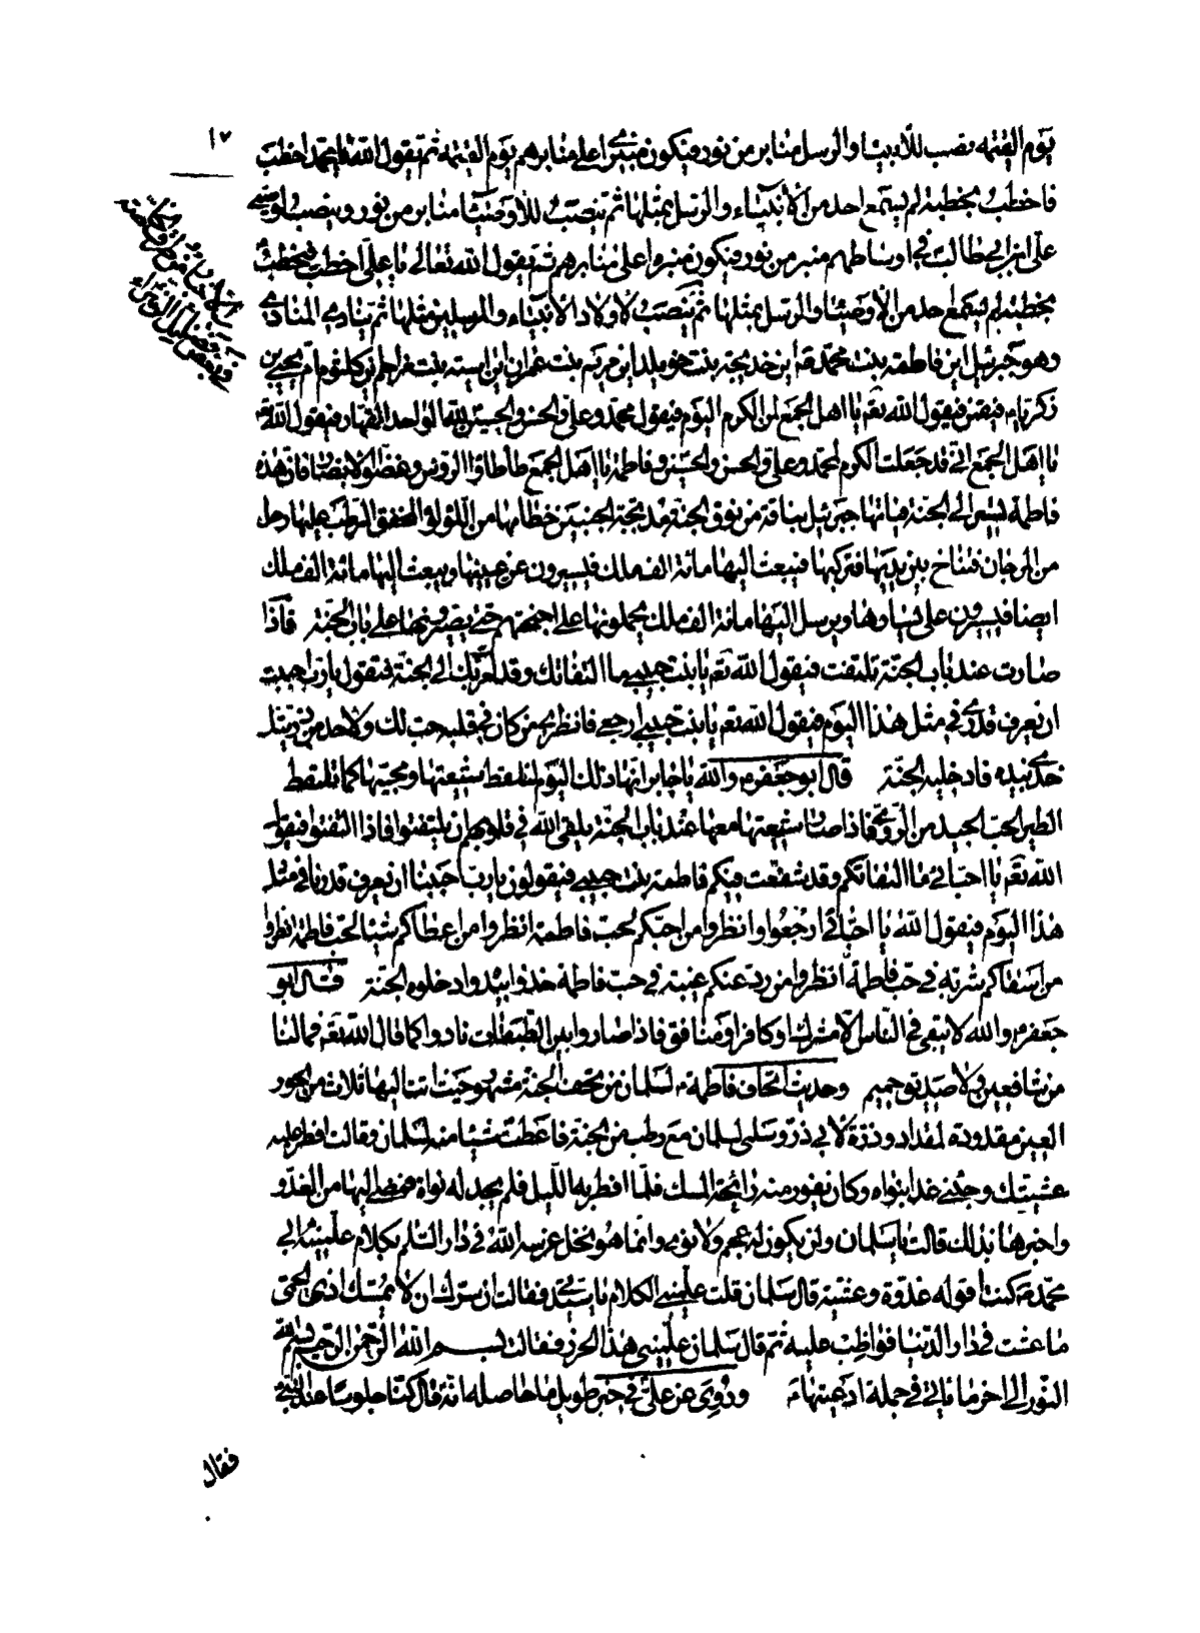 ١٧
يوم القيمة نصب للأنبياء والرسل منابر من نور فيكون منبري اعلى منابرهم يوم القيمة ثم يقول الله يا محمد اخطب
فاخطب بخطبة لم يستمع احد من الأنبياء والرسل بمثلها ثم ينصب للأوصياء منابر من نور وينصب لوصيي
علي ابن ابي طالب في اوساطهم منبر من نور فيكون منبره اعلى منابرهم ثم يقول الله تعالى يا علي اخطب فيخطب
بخطبة لم يستمع احد من الأوصياء والرسل بمثلها ثم ينصب لأولاد الأنبياء والمرسلين مثلها ثم ينادي المنادي
وهو جبرئيل اين فاطمة بنت محمد ص اين خديجة بنت خويلد اين مريم بنت عمران اين اسية بنت مزاحم اين كلثوم ام يحيى بن
زكريا م فيقمن فيقول الله تعم يا اهل الجمع لمن الكرم اليوم فيقول محمد وعلي والحسن والحسين لله الواحد القهار فيقول الله تع
يا اهل الجمع اني قد جعلت الكرم لمحمد وعلي والحسن والحسين وفاطمة يا اهل الجمع طأطاؤا الرؤس وغضوا الابصار فان هذه
فاطمة تسير الى الجنة فيأتها جبرئيل بناقة من نوق الجنة مدبجة الجنبين خطامها من اللؤلؤ المخفق الرطب عليها رحل
من المرجان فتناخ بين يديها فتركبها فيبعث اليها مائة الف ملك فيسيرون عن يمينها ويبعث اليها مائة الف ملك
ايضا فيسيرون على يسارها ويرسل اليها مائة الف ملك يحملونها على اجنحتهم حتى يصيرونها على باب الجنة فاذا
صارت عند باب الجنة تلتفت فيقول الله تعم يا بنت حبيبي ما التفاتك وقد امرت بك الى الجنة فتقول يا رب احببت
ان يعرف قدري في مثل هذا اليوم فيقول الله تعم يا بنت حبيبي ارجعي فانظري من كان في قلبه حب لك ولاحد من ذريتك
خذي بيده فادخليه الجنة قال ابو جعفر م والله يا جابر انها ذلك اليوم لتلتقط شيعتها ومحبيها كما يلتقط
الطير الحب الجيد من الردي فاذا صار شيعتها معها عند باب الجنة يلقي الله في قلوبهم ان يلتفتوا فاذا التفتوا فيقول
الله تعم يا احبائي ما التفاتكم وقد شفعت فيكم فاطمة بنت حبيبي فيقولون يا رب احببنا ان يعرف قدرنا في مثل
هذا اليوم فيقول الله يا احبائي ارجعوا وانظروا من احبكم لحب فاطمة انظروا من اعطاكم شيئا لحب فاطمة انظروا
من اسقاكم شربة في حب فاطمة انظروا من رد عنكم غيبة في حب فاطمة خذوا بيده وادخلوه الجنة قال ابو
جعفر م والله لا يبقى في الناس الا مشرك او كافر او منافق فاذا صاروا بين الطبقات نادوا كما قال الله تعم فما لنا
من شافعين ولا صديق حميم وحديث اتحاف فاطمة م لسلمان من تحف الجنة مشهور حيث اتتا اليها ثلاث من الحور
العين مقدودة لمقداد وذرة لابي ذر وسلمى لسلمان مع رطب من الجنة فاعطت شيئا منه لسلمان وقالت افطر عليه
عشيتك وجئني غدا بنواه وكان يفور منه رائحة المسك فلما افطر به الليل فلم يجد له نواة فمضى اليها من الغدو
واخبرها بذلك قالت يا سلمان ولن يكون له عجم ولا نوى وانما هو نخل غرسه الله في دار السلام بكلام علمنيه ابي
محمد ص كنت اقوله غدوة وعشية قال سلمان قلت علميني الكلام يا سيدتي فقالت ان سرك ان لا يمسك اذى الحمى
ما عشت في دار الدنيا فواظب عليه ثم قال سلمان علميني هذا الحرز فقالت بسم الله الرحمن الرحيم بسم الله
النور الى اخر ما يأتي في جملة ادعيتها م وروي عن علي في خبر طويل ما حاصله انه قال كنا جلوسا عند النبي
فقال